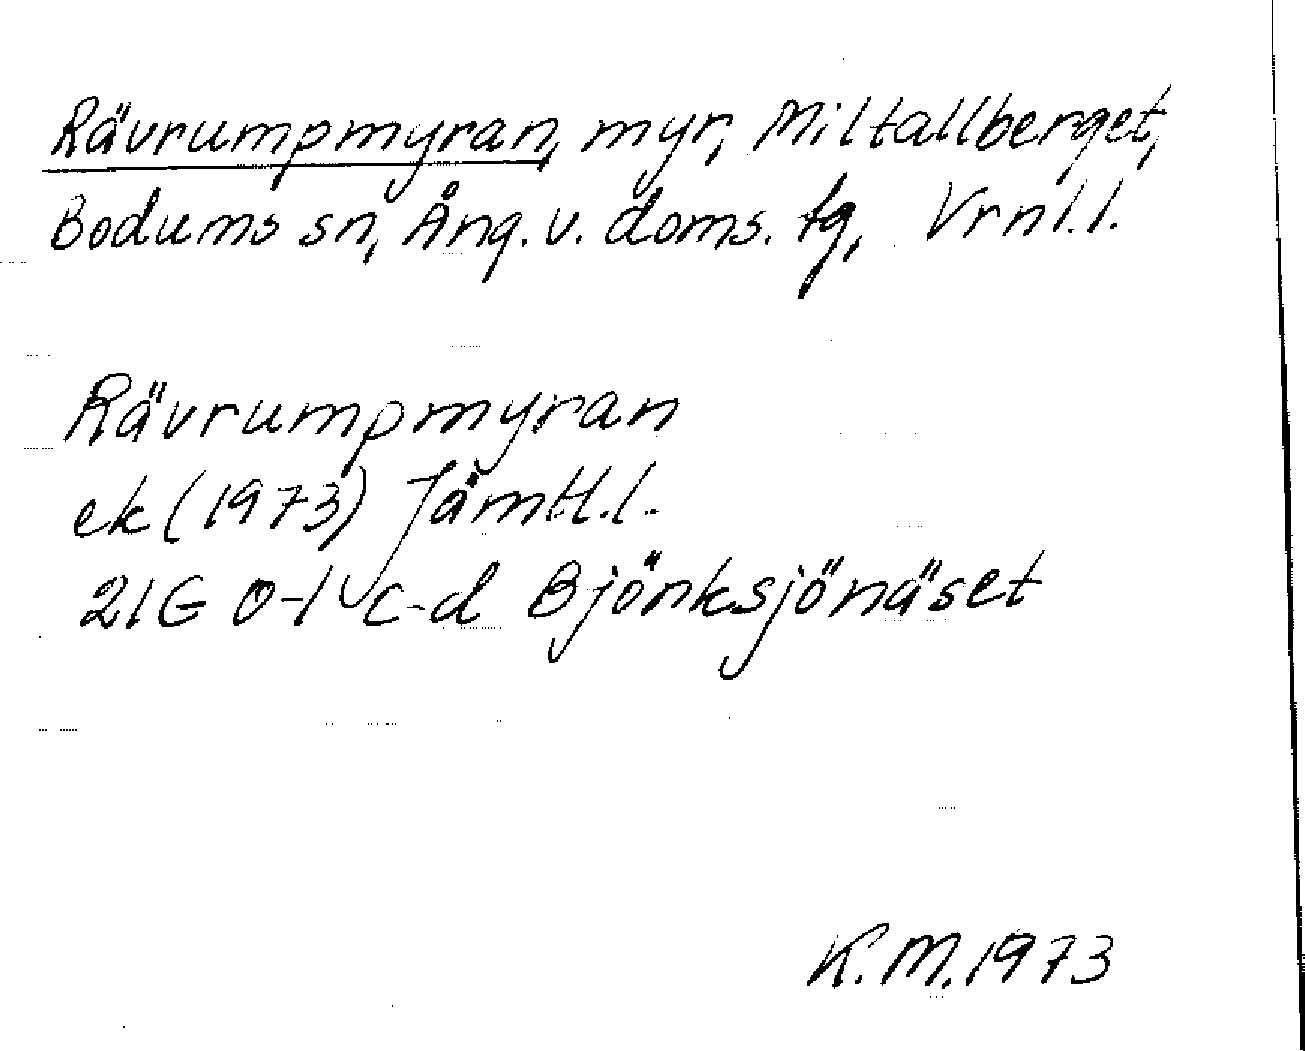 Rävrumpmyran, myr, Miltallberget,
Bodums sn, Ång. v. doms. tg, Vrnl. l.
Rävrumpmyran
ek (1973) Jämtl. l.
21G 0-1 c-d Björksjönäset
K. M. 1973